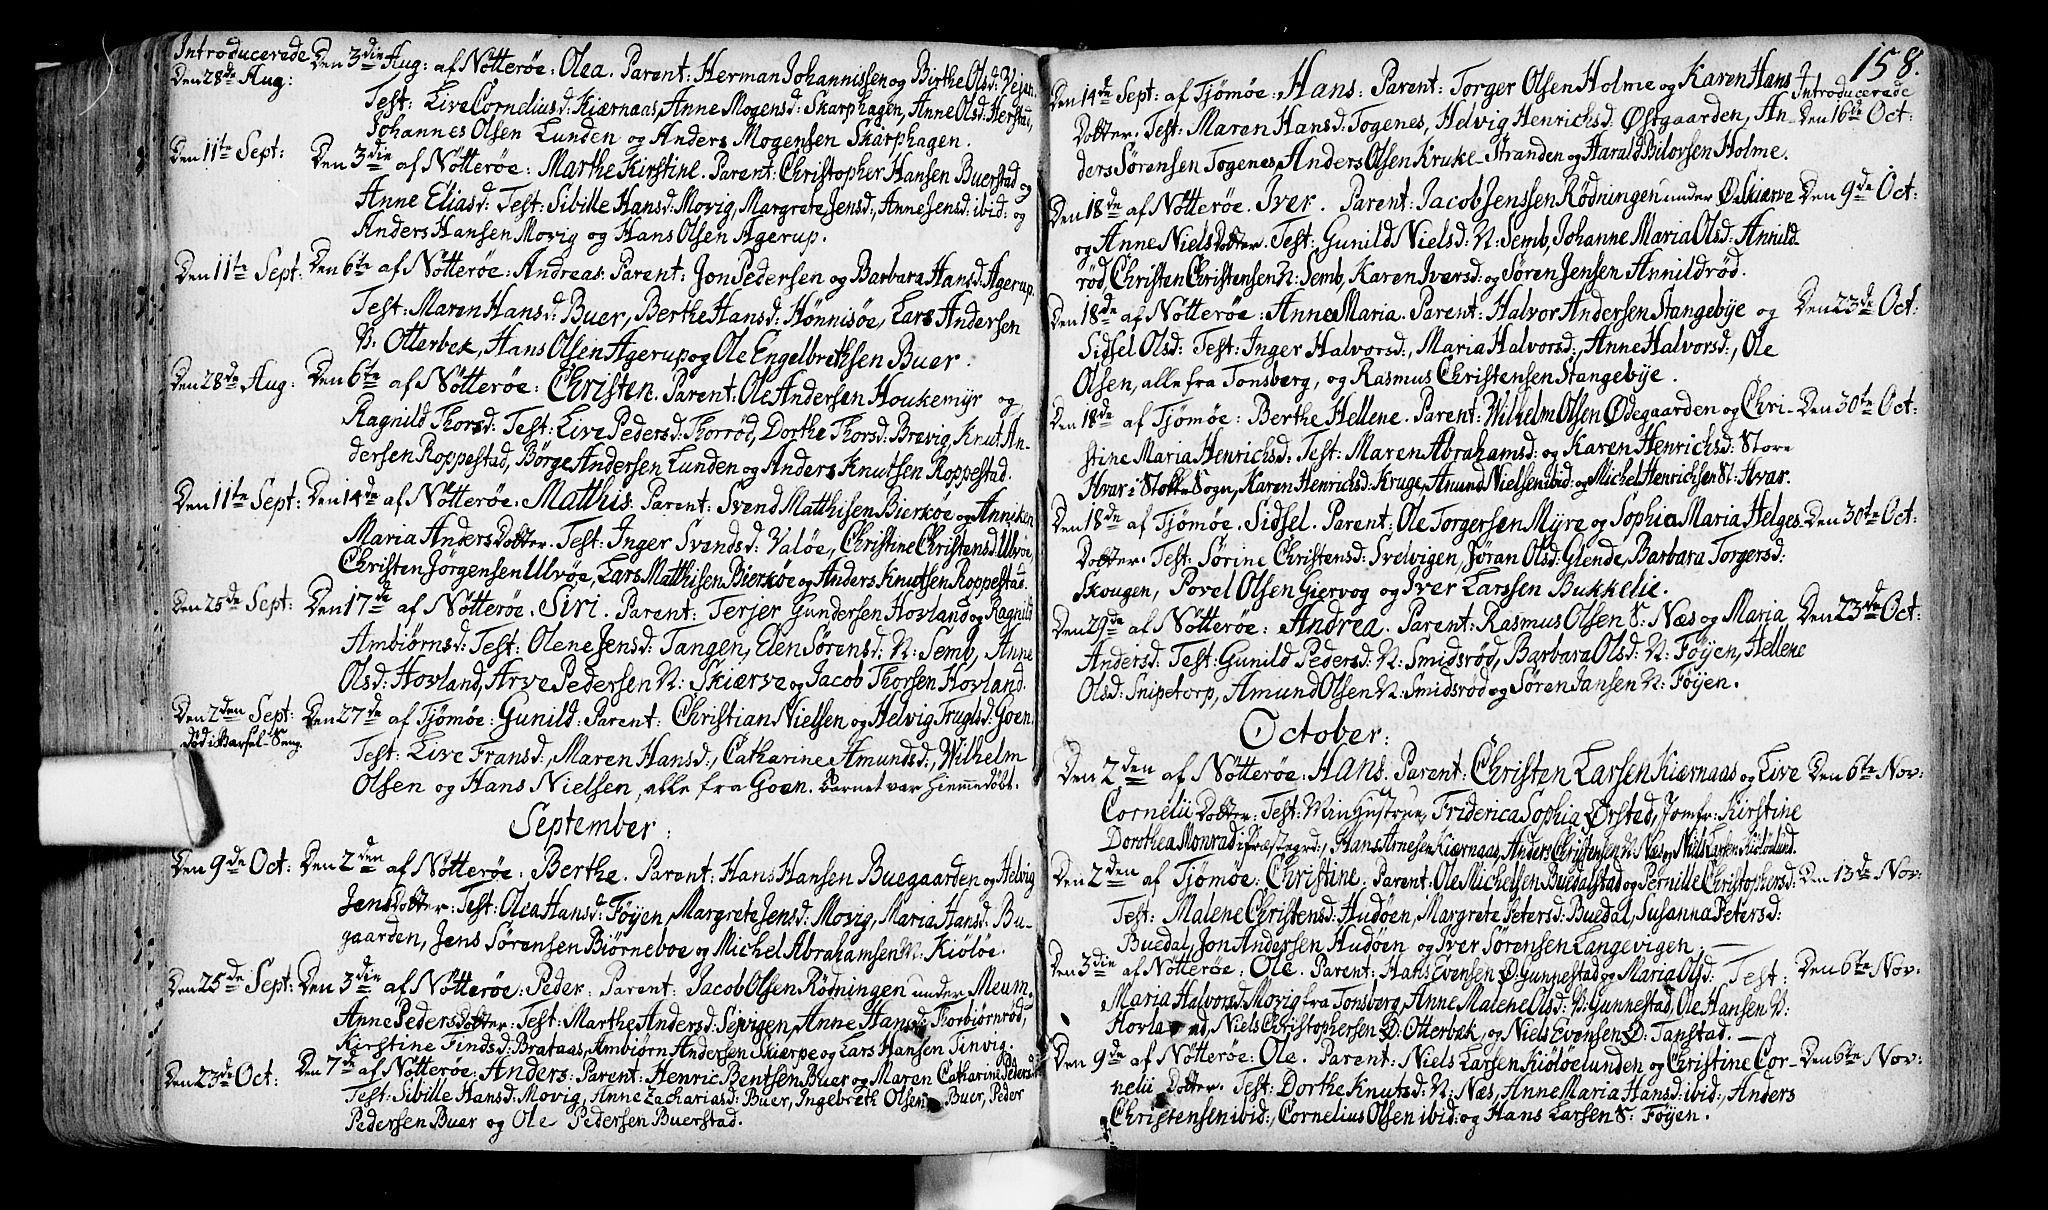 Introducerede Den 3die Aug: af Nötteröe: Olea. Parent: Herman Johannissen og Birthe Olsd: Vejen.
Den 28de Aug: Test: Live Corneliusd: Kiærnaas, Anne Mogensd: Skarphagen, Anne Olsd: Herstad,
Johannes Olsen Lunden og Anders Mogensen Skarphagen.
Den 11te Sept: Den 3die af Nötteröe: Marthe Kirstine. Parent: Christopher Hansen Buerstad og
Anne Eliasd: Test: Sibille Hansd: Movig, Margrete Jensd:, Anne Jensd: ibid: og
Anders Hansen Movig og Hans Olsen Agerup.
Den 11te Sept: Den 6te af Nötteröe: Andreas: Parent: Jon Pedersen og Barbara Hansd: Agerup.
Test: Maren Hansd: Buer, Berthe Hansd: Hönnisöe, Lars Andersen
N. Otterbek, Hans Olsen Agerup og Ole Engelbrethsen Buer.
Den 28de Aug: Den 6te af Nötteröe: Christen. Parent: Ole Andersen Houkemyr og
Ragnild Thorsd: Test: Live Pedersd: Thorröd, Dorthe Thorsd: Brevig, Knut An-
dersen Roppestad, Börge Andersen Lunden og Anders Knutsen Roppestad.
Den 11te Sept: Den 14de af Nötteröe: Matthis. Parent: Svend Matthisen Bierköe og Anniken
Maria Anders Dotter. Test: Inger Svendsd: Valöe, Christine Christensd: Ulvöe,
Christen Jörgensen Ulvöe, Lars Matthisen Bierköe og Anders Knutsen Roppestad.
Den 25de Sept: Den 17de af Nötteröe. Siri. Parent: Terjer Gundersen Hovland og Ragnild
Ambiörnsd: Test: Olene Jensd: Tangen, Elen Sörensd: N: Semb, Anne
Olsd: Hovland, Arve Pedersen N: Skiærve og Jacob Thorsen Hovland.
Den 2den Sept: Den 27de af Tjömöe: Gunild: Parent: Christian Nielsen og Helvig Truglsd: Goen.
död i Barsel-Seng. Test: Live Fransd:, Maren Hansd:, Catharine Amundsd:, Wilhelm
Olsen og Hans Nielsen, alle fra Goen. Barnet var hiemmedöbt.
September:
Den 9de Oct: Den 2den af Nötteröe: Berthe. Parent: Hans Hansen Buegaarden og Helvig
Jens Dotter: Test: Olea Hansd: Föyen, Margrete Jensd: Movig, Maria Hansd: Bu-
gaarden, Jens Sörensen Biörneboe og Michel Abrahamsen N: Kiölöe.
Den 25de Sept: Den 3die af Nötteröe: Peder: Parent: Jacob Olsen Rödningen under Meum.
Anne Peders Dotter: Test: Marthe Andersd: Sevigen, Anne Hansd: Thorbiörnröd,
Kirstine Findsd: Brataas, Ambiörn Andersen Skierpe og Lars Hansen Tinvig.
Den 23de Oct: Den 7de af Nötteröe: Anders: Parent: Henric Bentsen Buer og Maren Catharina Pedersd:
Test: Sibille Hansd: Movig, Anne Zachariasd: Buer, Ingebreth Olsen Buer, Peder
Pedersen Buer og Ole Pedersen Buerstad.
158.
Den 14de Sept: af Tjömöe: Hans: Parent: Torger Olsen Holme og Karen Hans Introducerede
Dotter. Test: Maren Hansd: Togenes, Helvig Henrichsd: Östgaarden, An- Den 16de Oct:
ders Sörensen Togenes, Anders Olsen Kruke-Stranden og Harald Bilovsen Holme.
Den 18de af Nötteröe. Iver. Parent: Jacob Jenssen Rödningen under Ö: Skiærve Den 9de Oct:
og Anne Niels Dotter. Test: Gunild Nielsd: N: Semb, Johanne Maria Olsd: Annild-
röd, Christen Christensen N: Semb, Karen Iversd: og Sören Jensen Annildröd.
Den 18de af Nötteröe: Anne Maria. Parent: Halvor Andersen Stangebÿe og Den 23de Oct:
Sidsel Olsd: Test: Inger Halvorsd:, Maria Halvorsd:, Anne Halvorsd:, Ole
Olsen, alle fra Tonsberg, og Rasmus Christensen Stangebÿe.
Den 18de af Tjömöe: Berthe Hellene. Parent: Wilhelm Olsen Ödegaarden og Chri- Den 30te Oct:
stine Maria Henrichsd: Test: Maren Abrahamsd: og Karen Henrichsd: Store
Hvar i Stokke Sogn, Karen Henrichsd: Kruge, Amund Nielsen ibid: og Michel Henrichsen St: Hvar.
Den 18de af Tjömöe. Sidsel. Parent: Ole Torgersen Mÿre og Sophia Maria Helges- Den 30te Oct:
Dotter. Test: Sörine Christensd: Svelvigen, Jöran Olsd: Glende, Barbara Torgersd:
Skougen, Povel Olsen Giervog og Iver Larssen Bukkelie.
Den 29de af Nötteröe: Andrea. Parent: Rasmus Olsen S: Næs og Maria Den 23de Oct:
Andersd: Test: Gunild Pedersd: N: Smidsröd, Barbara Olsd: N: Föÿen, Hellene
Olsd: Snipetorp, Amund Olsen N: Smidsröd og Sören Jansen N: Föÿen.
October:
Den 2den af Nötteröe: Hans. Parent: Christen Larsen Kiærnaas og Live Den 6te Nov:
Cornelii Dotter: Test: Min Hustrue, Friderica Sophia Örstad, Jomfr: Kirstine
Dorthea Monrad i Præstegrd:, Hans Arnesen Kiærnaas, Anders Christensen N: Næs og Niels Larsen Kiölöelund.
Den 2den af Tjömöe: Christine: Parent: Ole Michelsen Buedalstad og Pernille Christophersd: Den 13de Nov:
Test: Malene Christensd: Hudöen, Margrete Petersd: Buedal, Susanna Petersd:
Buedal, Jon Andersen Hudöen og Iver Sörensen Langevigen.
Den 3die af Nötteröe: Ole. Parent: Hans Evensen Ö: Gunnestad og Maria Olsd: Test: Den 6te Nov:
Maria Halvorsd: Movig fra Tonsberg, Anne Malene Olsd: N: Gunnestad, Ole Hansen N:
Hovland, Niels Christophersen Ö: Otterbek, og Niels Evensen Ö: Tanstad.
Den 9de af Nötteröe: Ole. Parent: Niels Larsen Kiölöelunden og Christine Cor- Den 6te Nov:
nelii Dotter. Test: Dorthe Knutsd: N: Næs, Anne Maria Hansd: ibid:, Anders
Christensen ibid:, Cornelius Olsen ibid: og Hans Larsen S: Föyen.